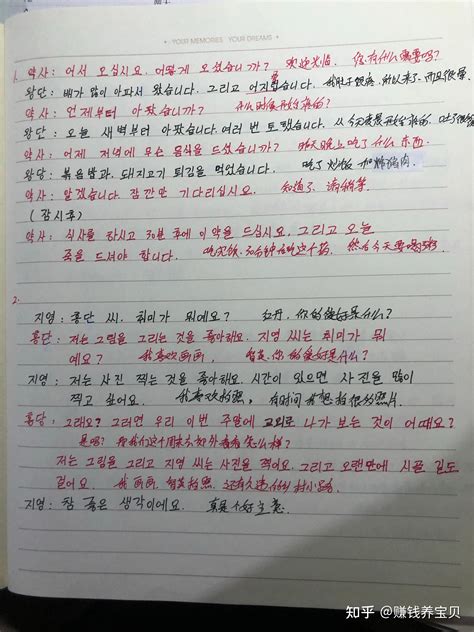 YOUR MEMORIES YOUR DREAMS
1. 약사: 어서 오십시오. 어떻게 오셨습니까? 欢迎光临. 您有什么需要吗?
왕단: 배가 많이 아파서 왔습니다. 그리고 어지럽습니다. 我肚子很疼, 所以来了. 而且很晕.
약사: 언제부터 아팠습니까? 什么时候开始疼的?
왕단: 오늘 새벽부터 아팠습니다. 여러 번 토했습니다. 从今天凌晨开始疼的.
약사: 어제 저녁에 무슨 음식을 드셨습니까? 昨天晚上吃了什么东西.
왕단: 볶음밥과, 돼지고기 튀김을 먹었습니다. 吃了炒饭和炸猪肉.
약사: 알겠습니다. 잠깐만 기다리십시오. 知道了. 请稍等.
(잠시후)
약사: 식사를 하시고 30분 후에 이 약을 드십시오. 그리고 오늘
죽을 드셔야 합니다. 吃完饭. 30分钟后吃这个药. 然后今天要喝粥.
2.
지영: 홍단 씨. 취미가 뭐예요? 红丹, 你的爱好是什么?
홍단: 저는 그림을 그리는 것을 좋아해요. 지영 씨는 취미가 뭐
예요? 我喜欢画画, 智英. 你的爱好是什么?
지영: 저는 사진 찍는 것을 좋아해요. 시간이 있으면 사진을 많이
찍고 싶어요. 我喜欢拍照, 有时间我想拍很多照片.
홍단: 그래요? 그러면 우리 이번 주말에 교외로 나가 보는 것이 어때요?
是吗? 那我们这个周末去郊外看看怎么样?
저는 그림을 그리고 지영 씨는 사진을 찍어요. 그리고 오랜만에 시골 길도
걸어요. 我画画, 智英拍照.
지영: 참 좋은 생각이에요. 真是个好主意.
知乎 @赚钱养宝贝